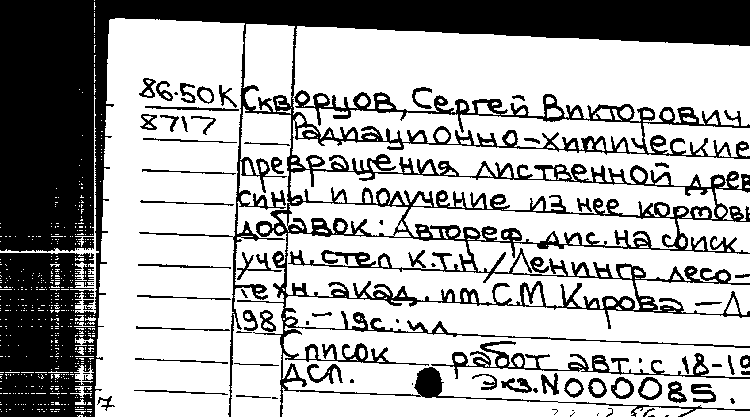 86-50К Скворцов, Сергей Викторович
8717 Радиационно-химические
превращения лиственной древе
сины и получение из нее кормовы
добавок: Автореф. дис. на соиск.
учен. степ к.т.н./Ленингр. лесо-
техн. акад. им С.М. Кирова. - Л.
1985. - 19с.: ил
Список работ авт.: с. 18-19
ДСП. Экз. N000085.